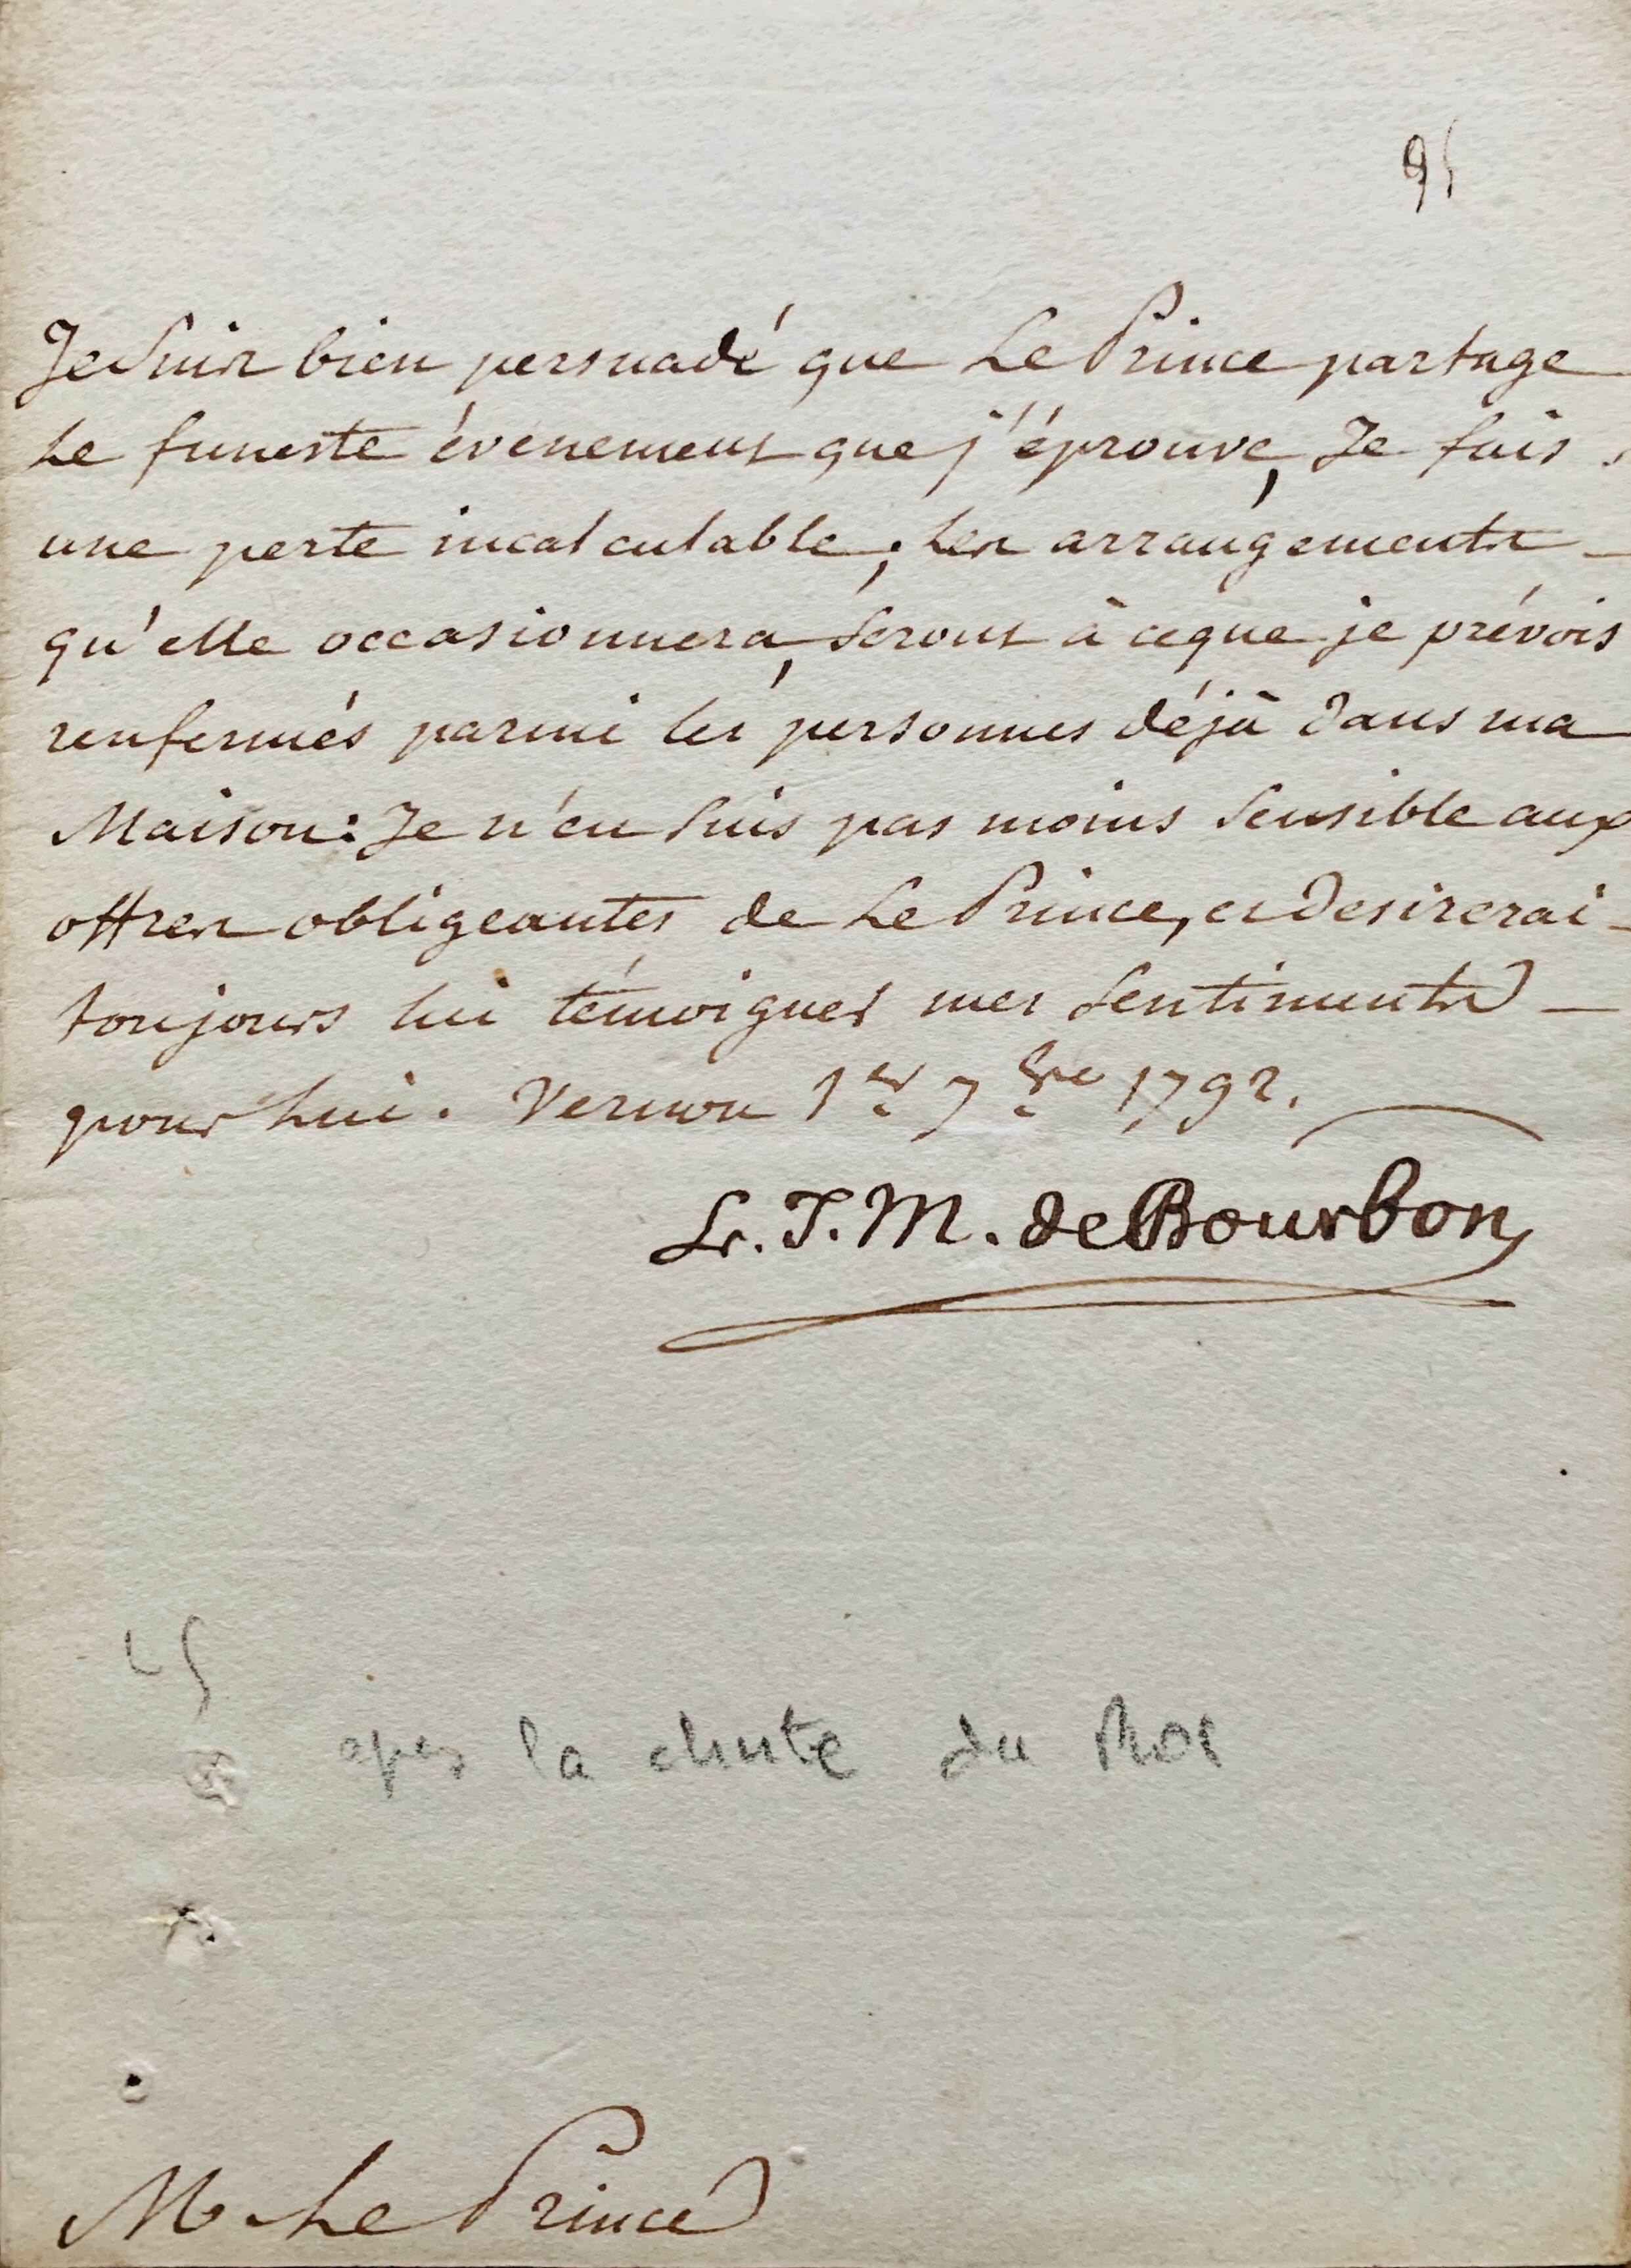 95
Je suis bien persuadé que Le Prince partage
Le funeste évenement que j'éprouve, Je fais
une perte incalculable; Les arrangements
qu'elle occasionnera, seront à ceque je prévois
renfermés parmi les personnes déjà dans ma
Maison: Je n'en suis pas moins sensible aux
offres obligeantes de Le Prince, et desirerai
toujours lui témoigner mes sentiments
pour Lui. Vernon 1er 7bre 1792.
L. J. M. de Bourbon
apres la chute du Roi
M. Le Prince